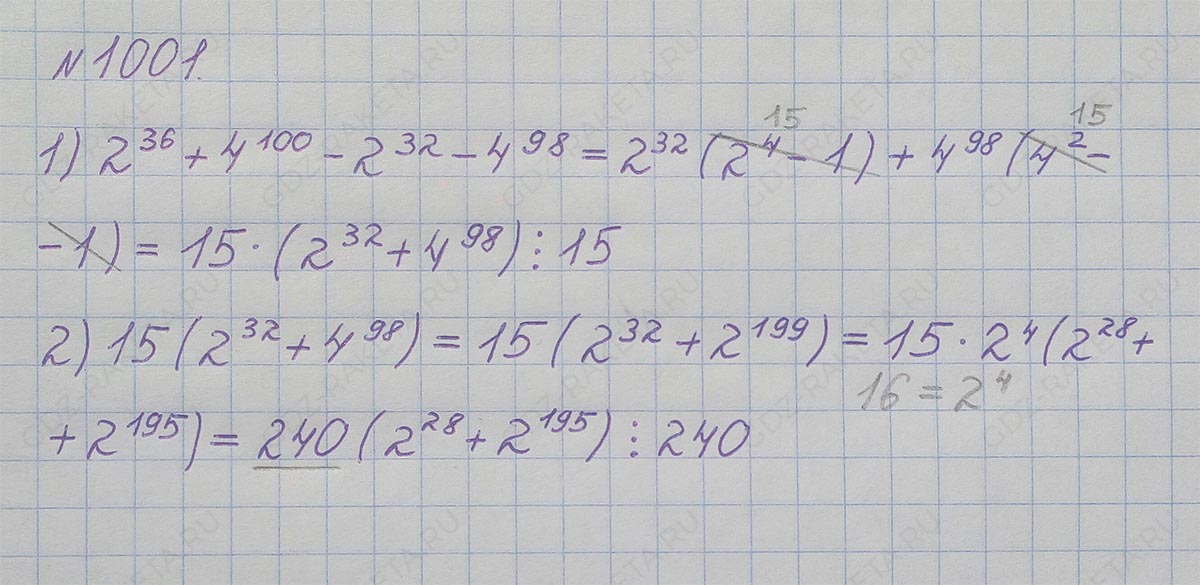 №1001.
15 15
1) 2³⁶ + 4¹⁰⁰ - 2³² - 4⁹⁸ = 2³² (2⁴ - 1) + 4⁹⁸ (4² -
- 1) = 15 · (2³² + 4⁹⁸) ⋮ 15
2) 15 (2³² + 4⁹⁸) = 15 (2³² + 2¹⁹⁹) = 15 · 2⁴ (2²⁸ +
16 = 2⁴
+ 2¹⁹⁵) = 240 (2²⁸ + 2¹⁹⁵) ⋮ 240
GDZ-RAKETA.RU